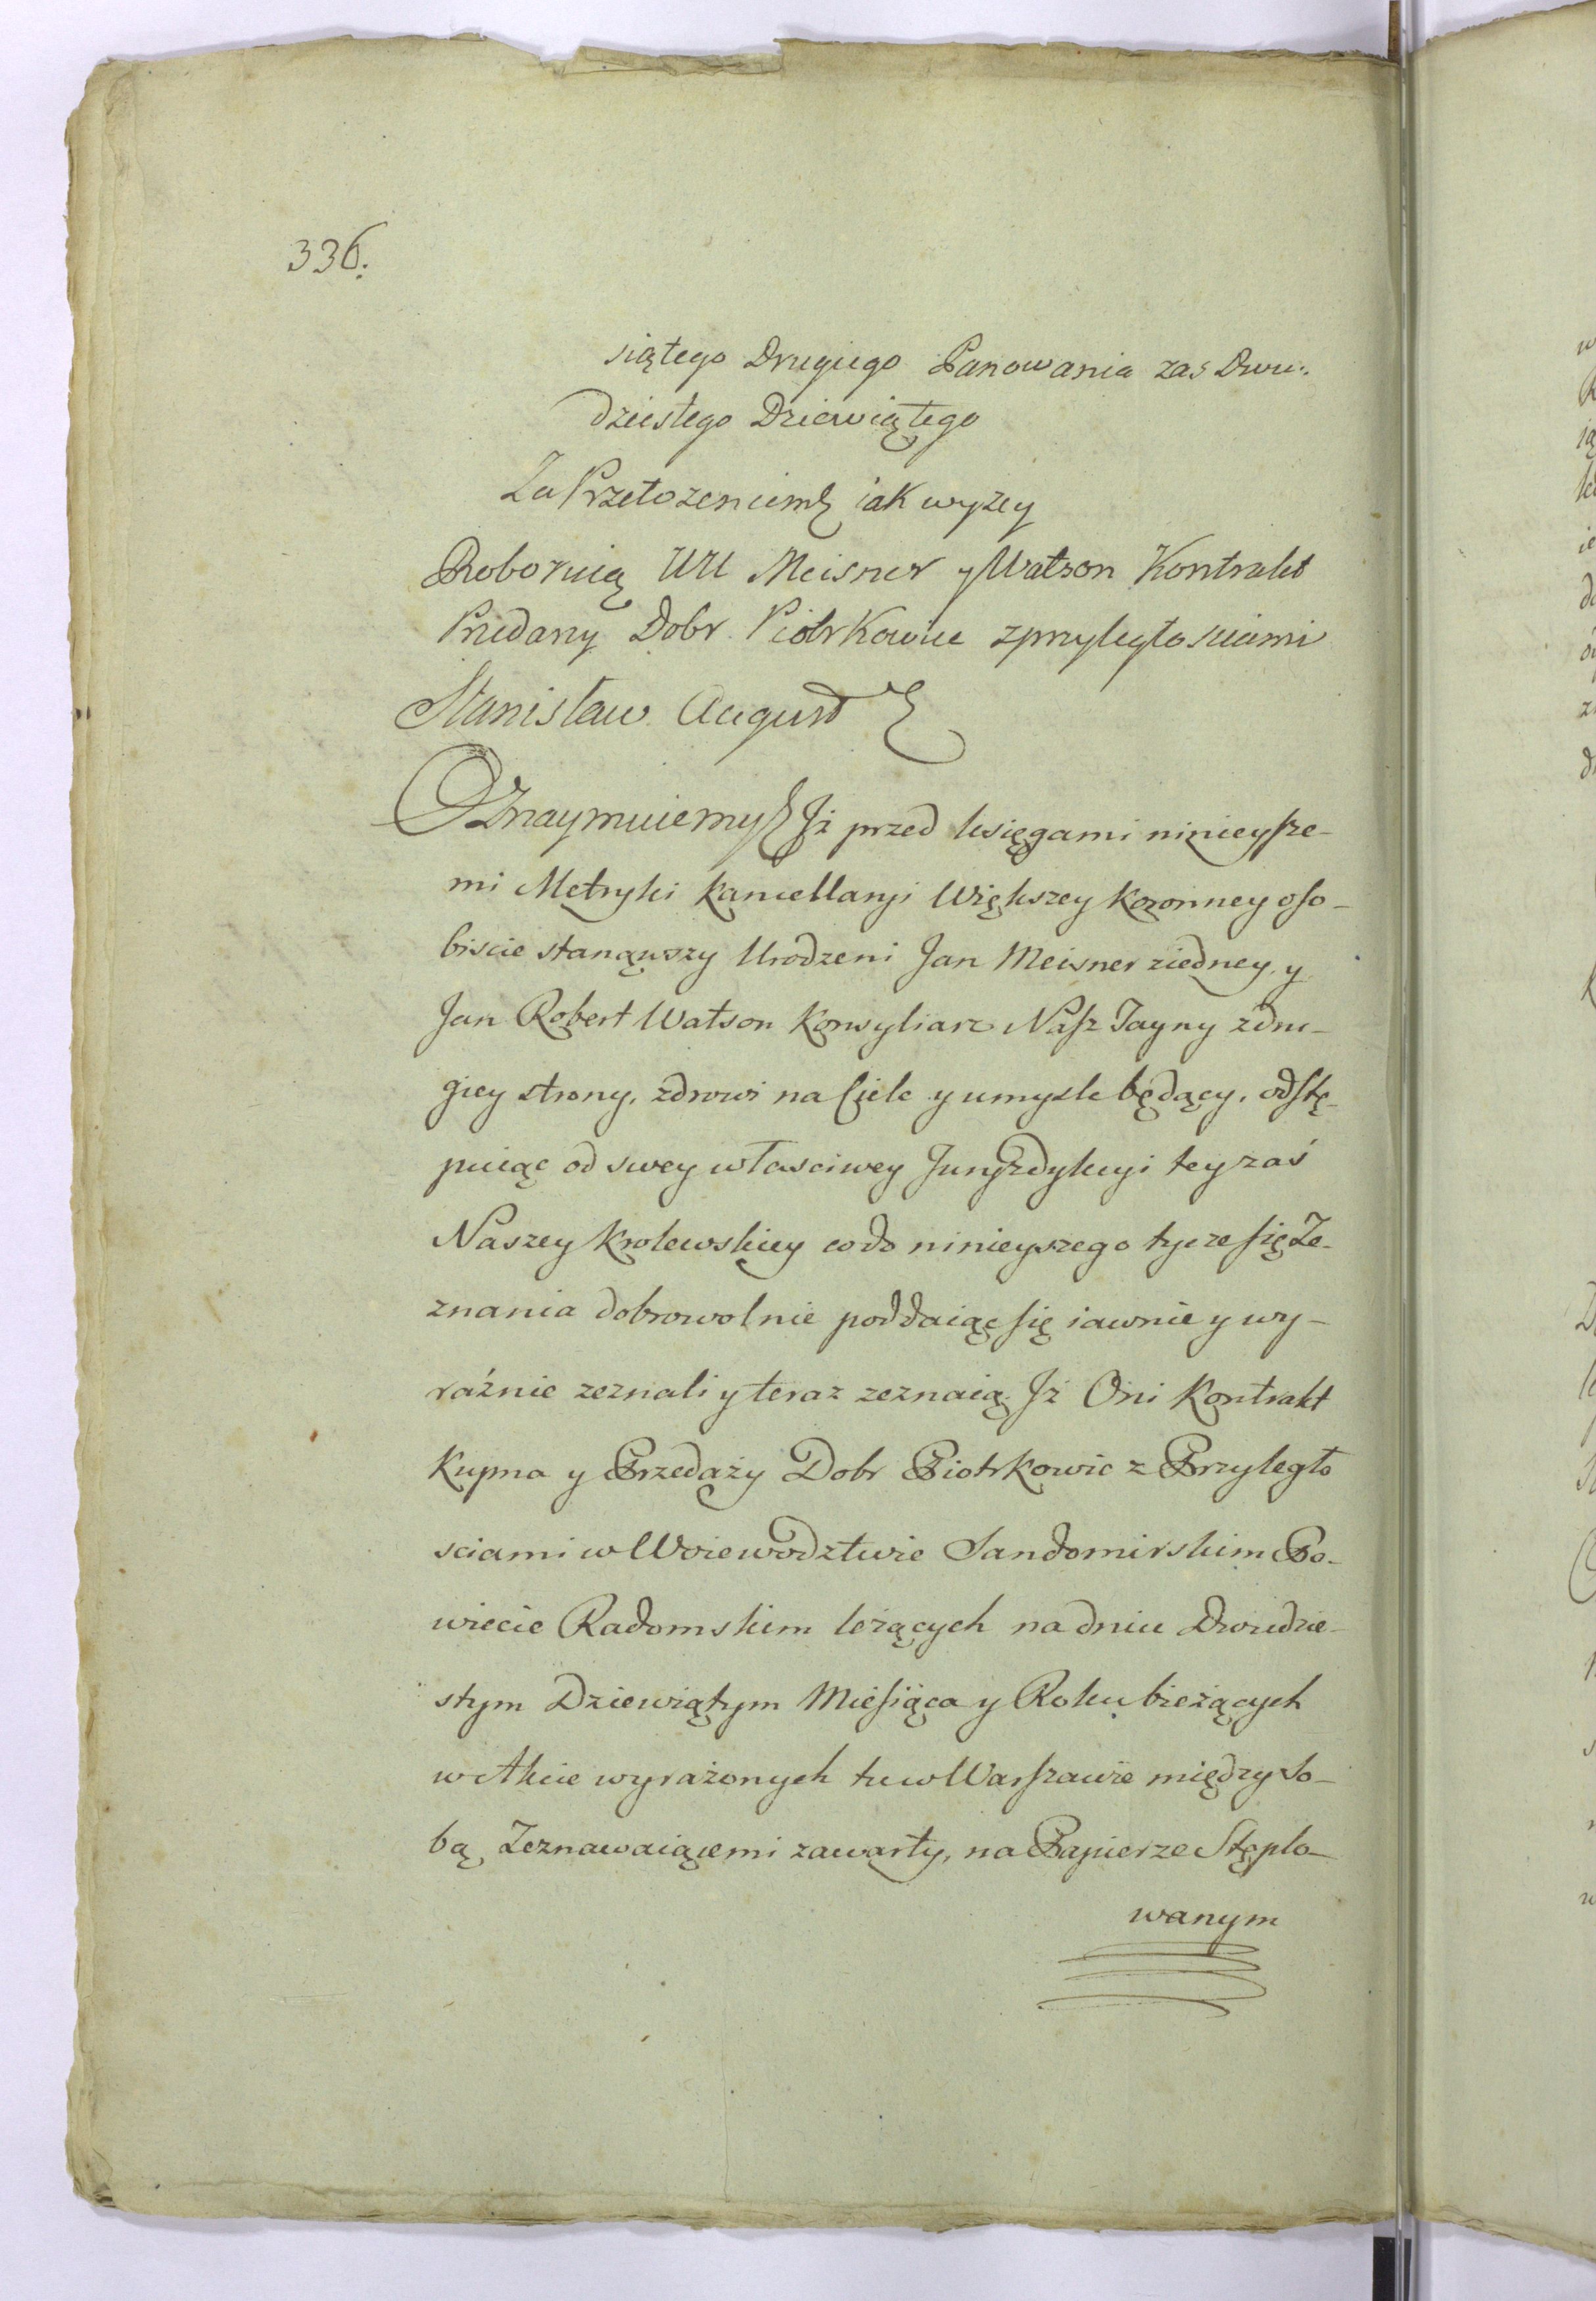 336.
siątego Drugiego Panowania zas Dwu-
dziestego Dziewiątego
Za Przełozeniem jak wyzey
Roboruią UU Meisner y Watson Kontrakt
Przedaży Dobr Piotrkowic z przyległosciami
Stanisław August
Oznaymuiemy Iż przed księgami ninieysze-
mi Metryki Kancellaryi Większey Koronney oso-
biscie stanąwszy Urodzeni Jan Meisner ziedney y
Jan Robert Watson Konsyliarz Nasz Tayny zdru-
giey strony, zdrowi na Ciele y umysle będący, odstę-
puiąc od swey własciwey Juryzdykcyi tey zaś
Naszey Krolewskiey co do ninieyszego tycze się Ze-
znania dobrowolnie poddaiąc się iawnie y wy-
raźnie zeznali y teraz zeznaią. Jż Oni Kontrakt
Kupna y Przedaży Dobr Piotrkowic z Przyległo
sciami w Woiewodztwie Sandomirskim Po-
wiecie Radomskim leżących na dniu Dwudzie-
stym Dziewiątym Miesiąca y Roku bieżących
w Akcie wyrażonych tu w Warszawie między So-
bą Zeznawaiącemi zawarty, na Papierze Stęplo-
wanym